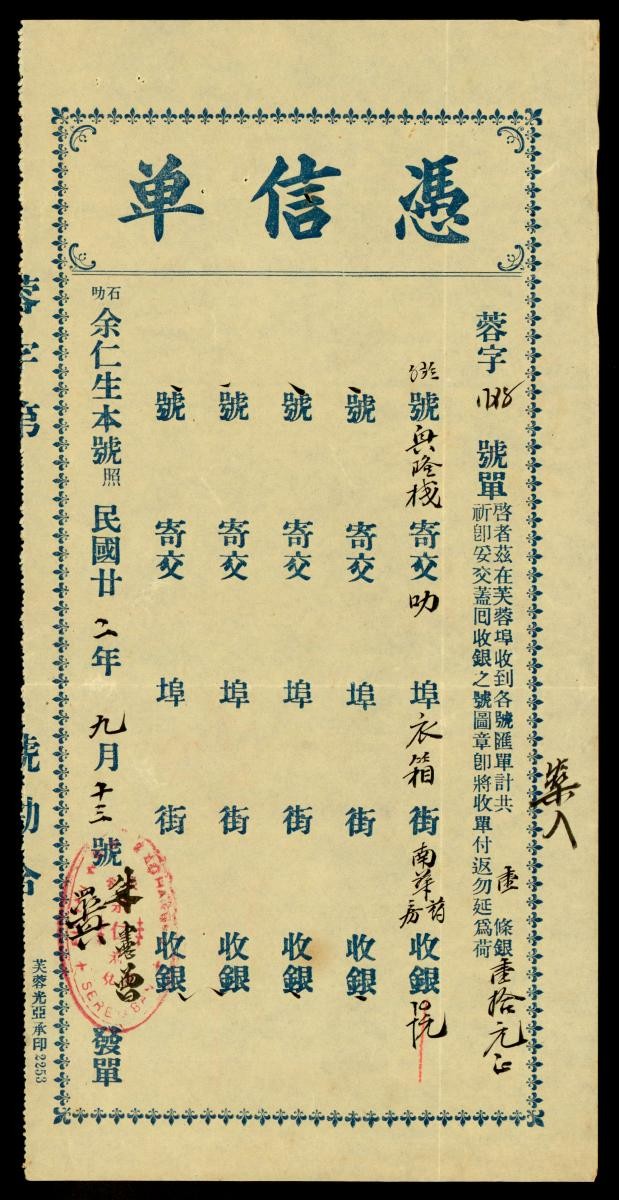 憑信单
蓉字 號單
啓者茲在芙蓉埠收到各號匯單計共 壹 條銀壹拾元正
祈卽妥交蓋囘收銀之號圖章卽將收單付返勿延爲荷
號興隆棧寄交叻埠衣箱街南華 收銀
號 寄交 埠 街 收銀
號 寄交 埠 街 收銀
號 寄交 埠 街 收銀
號 寄交 埠 街 收銀
石叻余仁生本號照 民國廿二年九月十三號 發單
SEREMBAN
蓉字第 號勘合
芙蓉光亞承印2253